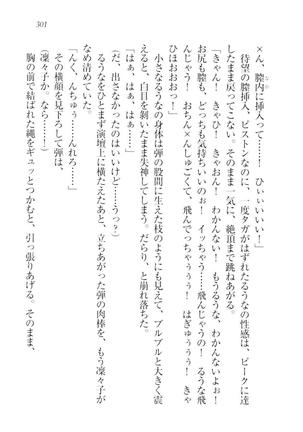 301
×ん、膣内に挿入って……！　ひぃいいい！」
待望の膣挿入、ピストンなのに、一度タガがはずれたるうなの性感は、ピークに達
したまま戻ってこない。そのまま一気に、絶頂まで跳ねあがる。
「きゃん！　きゃひ！　きゃおん！　もうなにも、わかんない、わかんないよぉ！
お尻も膣も、どっちも気持ちいいのぉ！　イッちゃう……飛んじゃうの！　るうな飛
んじゃう！　おちん×んしゅごくて、飛んでっちゃぅうぅ！　はぎゅうぅぅっ！
ひほおおおっ！」
小さなるうなの身体は弾の股間に生えた枝のようにも見えて、ブルブルと大きく震
えると、白目を剝いたまま失神してしまう。だらり、と崩れ落ちた。
「はぁ、はぁ、はぁ……」
（だ、出さなかったのはいいけど……うっ？）
るうなをひとまず演壇上に横たえたあと、立ちあがった弾の肉棒を、もう凜々子が
なめ清めていた。
「んく、んちゅう……んれろ……」
その横顔を見下ろして弾は、
（凜々子、なら……！）
胸の前に結ばれた縄をギュッとつかむと、引っ張りあげる。そのまま、